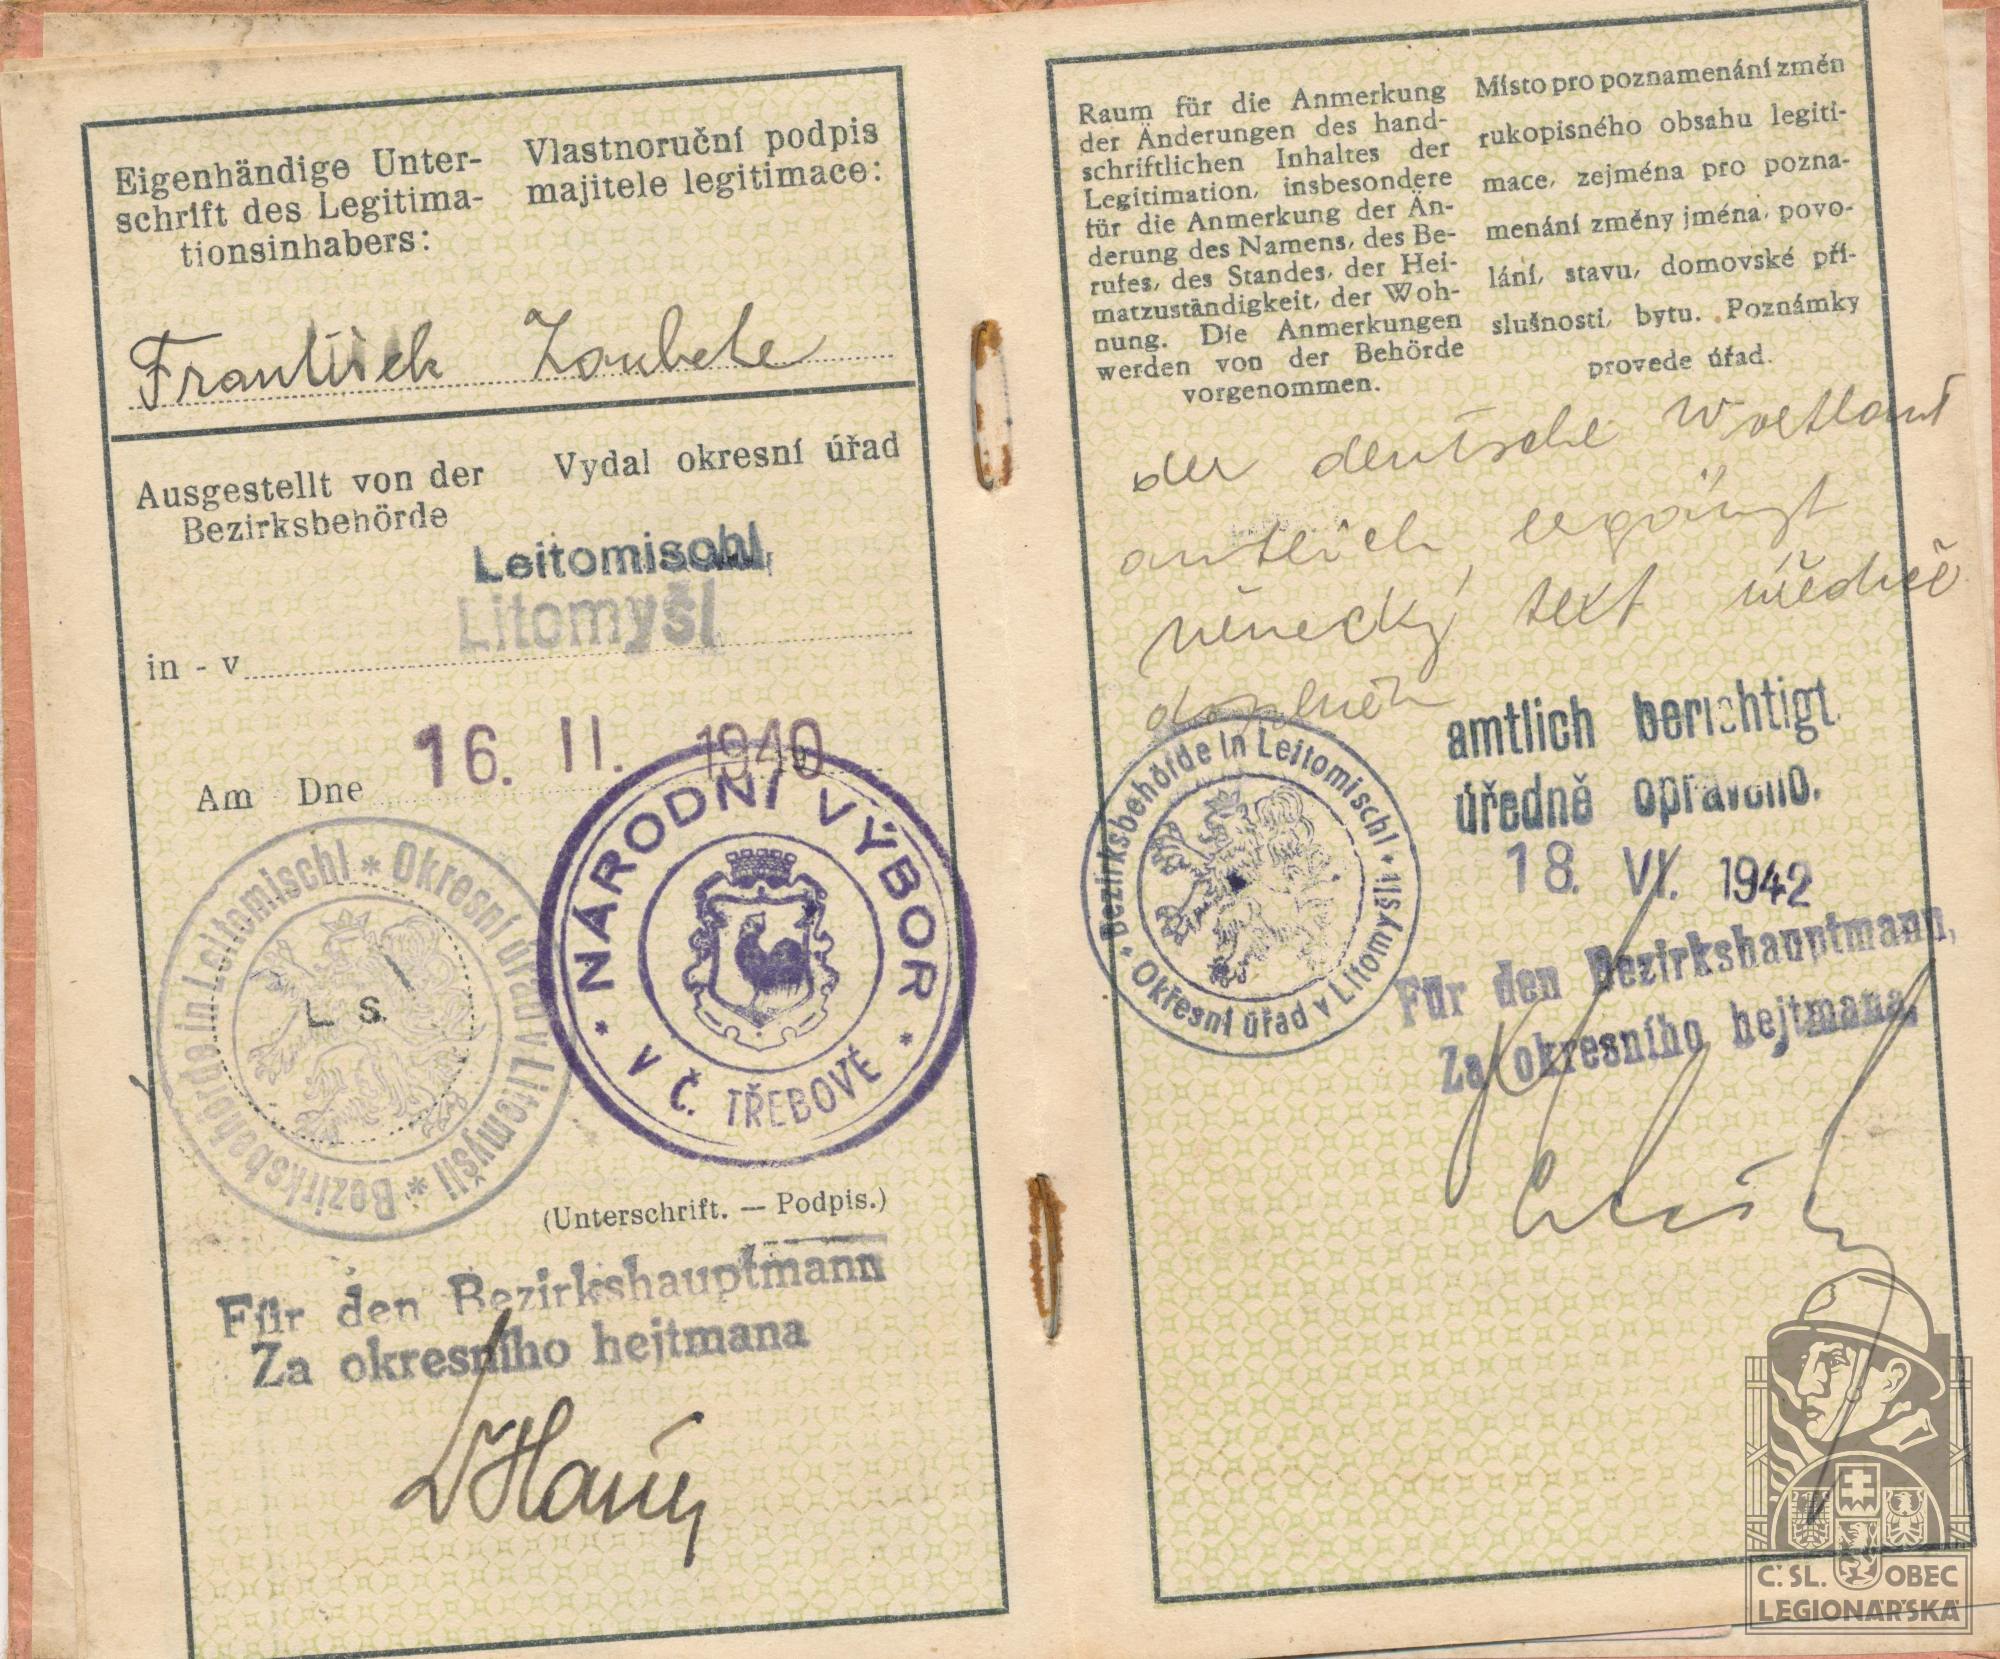 Eigenhändige Unter-
schrift des Legitima-
tionsinhabers:
Vlastnoruční podpis
majitele legitimace:
František Zoubele
Ausgestellt von der
Bezirksbehörde
Vydal okresní úřad
Leitomischl,
Litomyšl
in - v
Am Dne 16. II. 1940
Bezirksbehörde in Leitomischl * Okresní úřad v Litomyšli *
L. S.
* NÁRODNÍ VÝBOR *
V Č. TŘEBOVÉ
(Unterschrift. — Podpis.)
Für den Bezirkshauptmann
Za okresního hejtmana
Raum für die Anmerkung
der Änderungen des hand-
schriftlichen Inhaltes der
Legitimation, insbesondere
für die Anmerkung der Än-
derung des Namens, des Be-
rufes, des Standes, der Hei-
matzuständigkeit, der Woh-
nung. Die Anmerkungen
werden von der Behörde
vorgenommen.
Místo pro poznamenání změn
rukopisného obsahu legiti-
mace, zejména pro pozna-
menání změny jména, povo-
lání, stavu, domovské pří-
slušnosti, bytu. Poznámky
provede úřad.
der deutsche Wortlaut
amtlich ergänzt
německý text úředně
doplněn
amtlich berichtigt
úředně opraveno.
18. VI. 1942
Bezirksbehörde in Leitomischl * Okresní úřad v Litomyšli *
Für den Bezirkshauptmann,
Za okresního hejtmana,
Č. SL. OBEC
LEGIONÁŘSKÁ